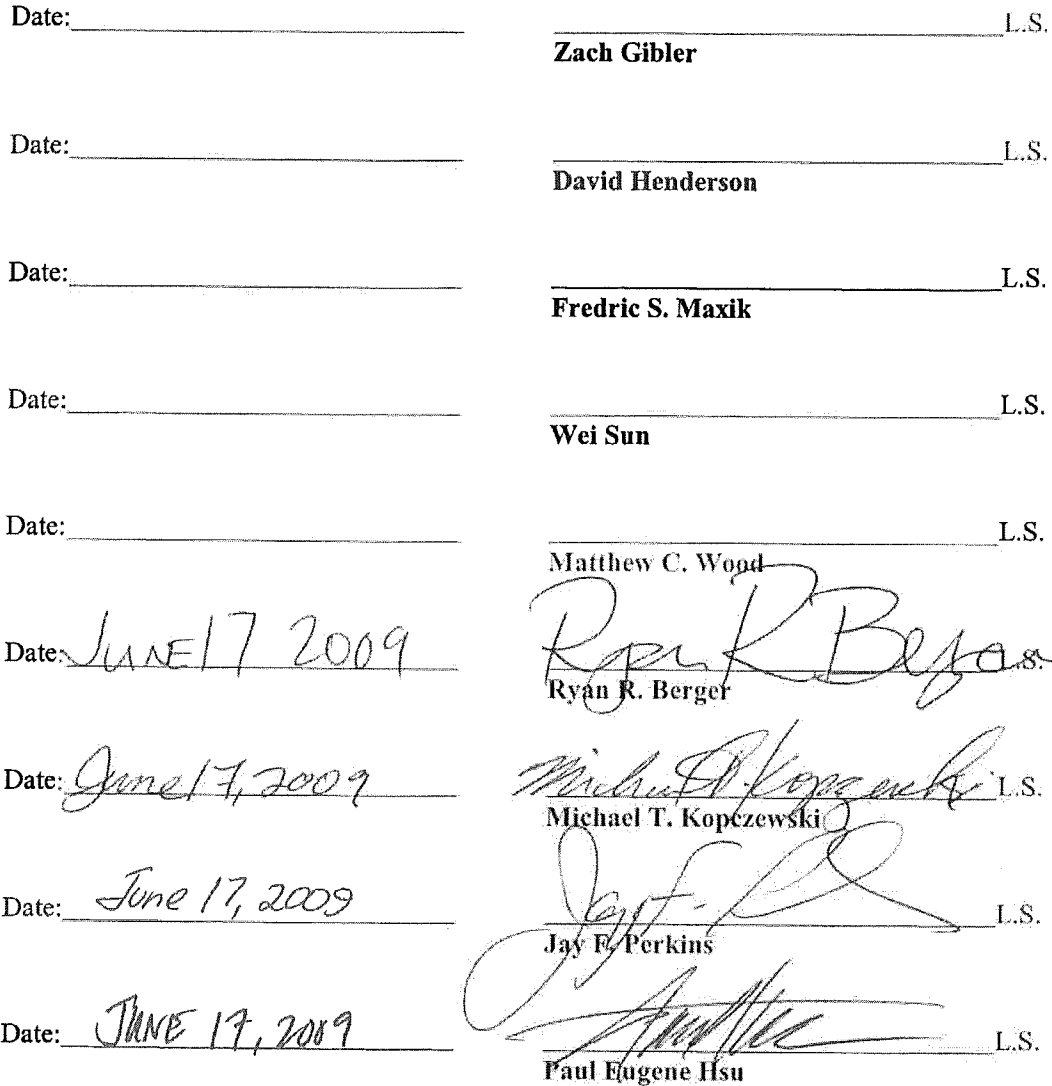 Date: L.S.
Zach Gibler
Date: L.S.
David Henderson
Date: L.S.
Fredric S. Maxik
Date: L.S.
Wei Sun
Date: L.S.
Matthew C. Wood
Date: JUNE 17 2009 Ryan R Berger L.S.
Ryan R. Berger
Date: June 17, 2009 Michael T. Kopczewski L.S.
Michael T. Kopczewski
Date: June 17, 2009 Jay F. L.S.
Jay F. Perkins
Date: JUNE 17, 2009 L.S.
Paul Eugene Hsu